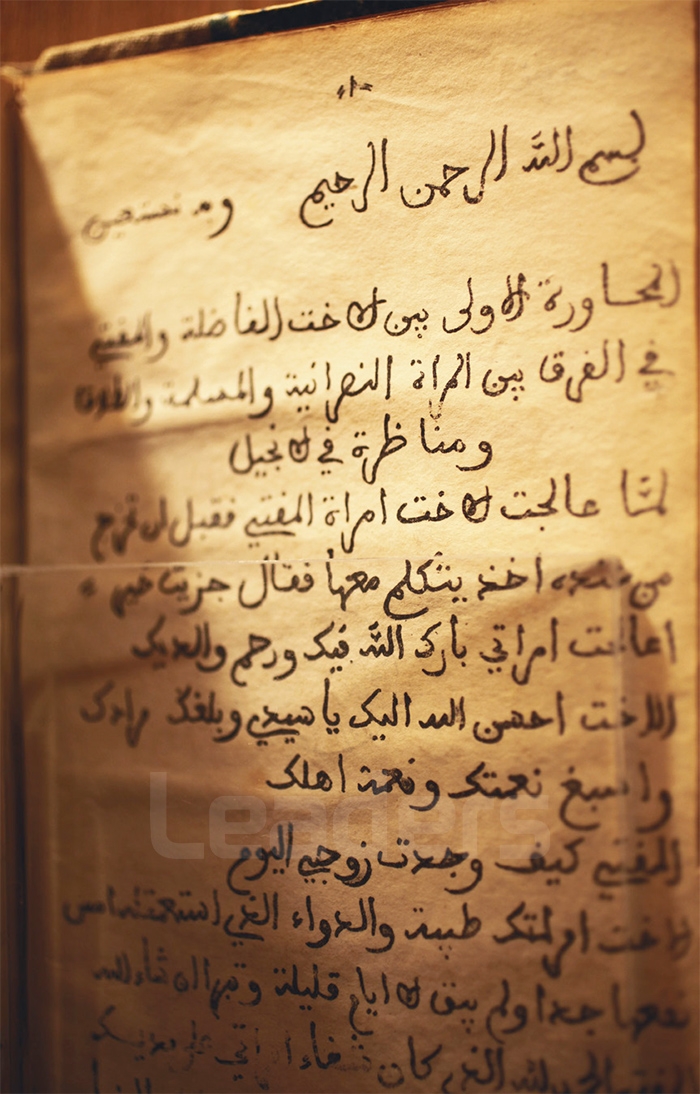 بسم الله الرحمن الرحيم وبه نستعين
المحاورة الاولى بين الاخت الفاضلة والمفتي
في الفرق بين المراة النصرانية والمسلمة والطلاق
ومناظرة في الانجيل
لمّا عالجت الاخت امراة المفتي فقبل ان تخرج
من عنده اخذ يتكلم معها فقال جزيت خير
اعالجت امراتي بارك الله فيك ورحم والديك
الاخت احسن الله اليك يا سيدي وبلغك مرادك
واسبغ نعمتك ونعمة اهلك
المفتي كيف وجدت زوجي اليوم
الاخت امراتك طيبة والدواء الذي استعملته امس
نفعها جدا ولم يبق الا ايام قليلة وتبرا ان شاء الله
المفتي الحمد لله الذي كان شفاء امراتي على يديك
Leaders